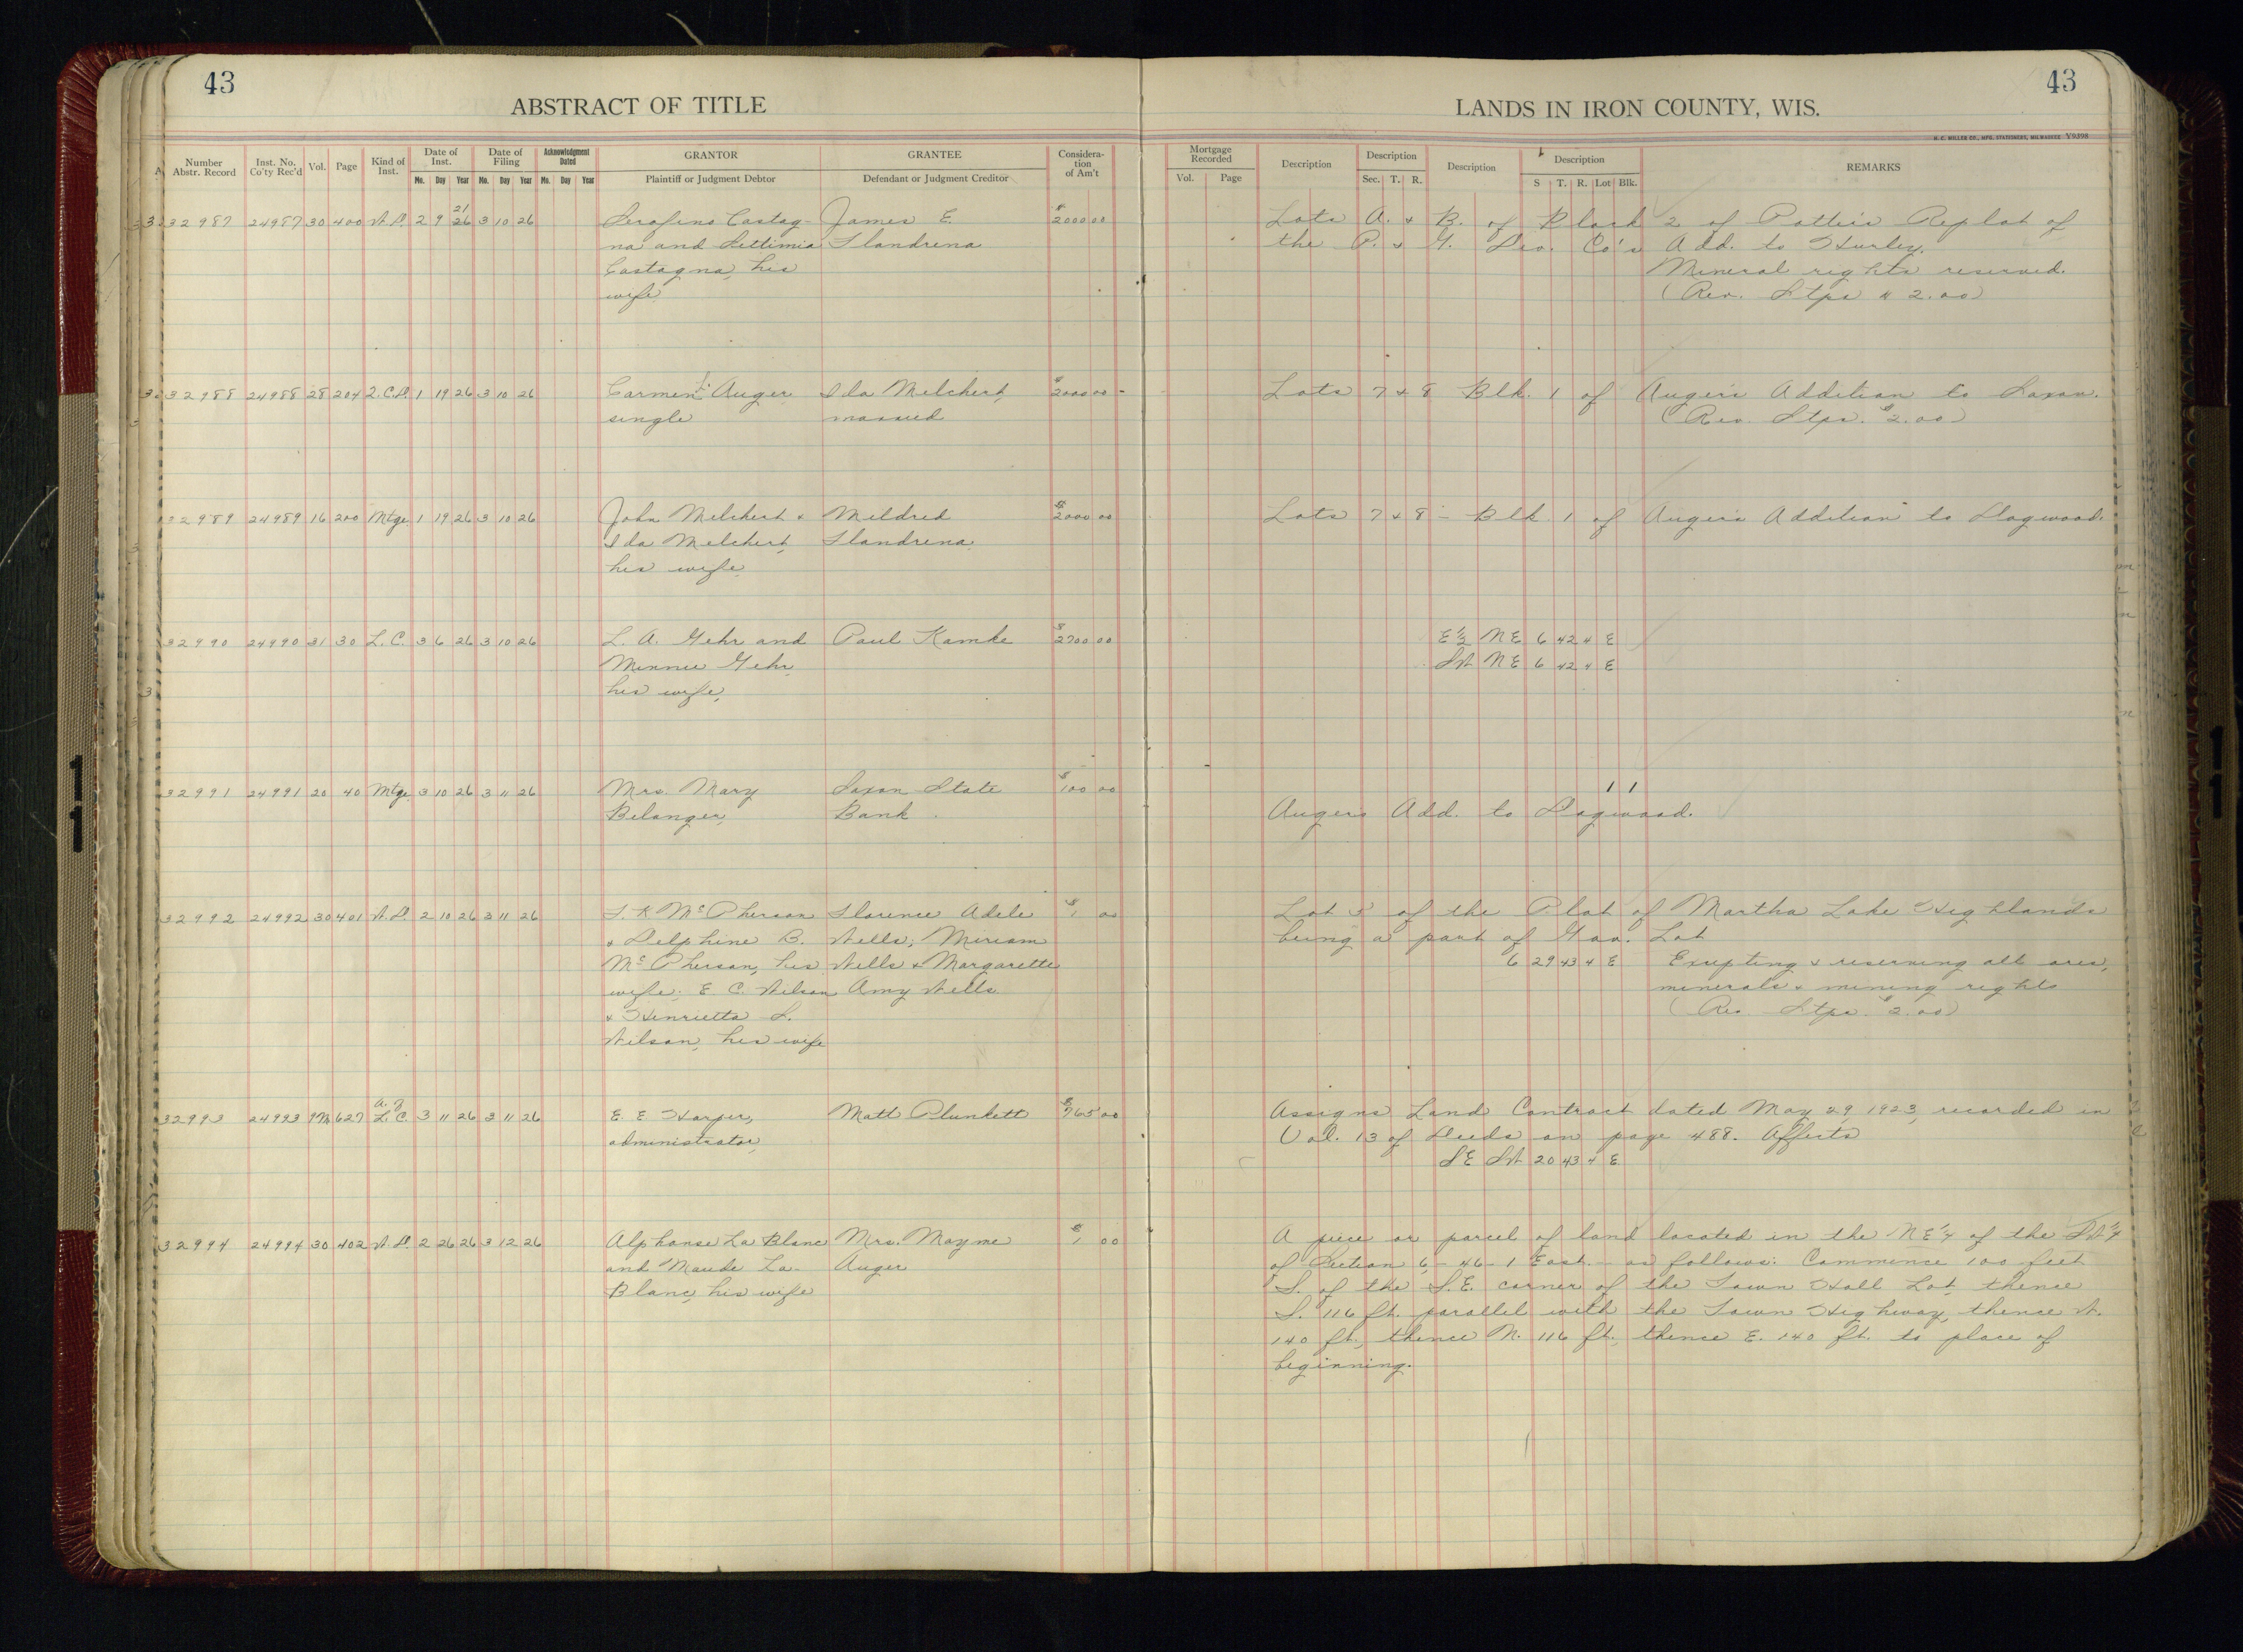 43
43
ABSTRACT OF TITLE
LANDS IN IRON COUNTY, WIS.
H. C. MILLER CO., MFG. STATIONERS, MILWAUKEE V9398
Number Abstr. Record Inst. No. Co'ty Rec'd Vol. Page Kind of Inst. Date of Inst. Mo. Day Year Date of Filing Mo. Day Year Acknowledgment Dated Mo. Day Year GRANTOR Plaintiff or Judgment Debtor GRANTEE Defendant or Judgment Creditor Considera-tion of Am't Mortgage Recorded Vol. Page Description Description Sec. T. R. Description Description S T. R. Lot Blk. REMARKS
21
32987 24987 30 400 W.D. 2 9 26 3 10 26 Serafino Castag- James E. $2000 00 Lots A. & B. of Block 2 of Potter's Replat of
na and Settimia Flandrena the P. & G. Dev. Co's Add. to Hurley.
Castagna, his Mineral rights reserved.
wife (Rev. Stps $2.00)
32988 24988 28 204 Q.C.D. 1 19 26 3 10 26 Carmen Auger Ida Melchert, $2000 00 Lots 7 & 8 Blk. 1 of Auger's Addition to Saxon.
single married (Rev. Stps. $2.00)
32989 24989 16 200 Mtge. 1 19 26 3 10 26 John Melchert & Mildred $2000 00 Lots 7 & 8 - Blk 1 of Auger's Addition to Dogwood.
Ida Melchert, Flandrena
his wife
32990 24990 31 30 L. C. 3 6 26 3 10 26 L. A. Gehr and Paul Kamke $2700 00 E½ NE 6 42 4 E
Minnie Gehr, SW NE 6 42 4 E
his wife,
32991 24991 20 40 Mtge 3 10 26 3 11 26 Mrs. Mary Saxon State $100 00 1 1
Belanger, Bank Augers Add. to Dogwood.
32992 24992 30 401 W.D. 2 10 26 3 11 26 McPherson Florence Adele $1 00 Lot 5 of the Plat of Martha Lake Highlands
& Delphine B. Wells, Miriam being a part of Gov. Lot
McPherson, his Wells & Margarette 6 29 43 4 E Exepting & reserving all ores,
wife; E. C. Wilson Amy Wells minerals & mining rights
& Henrietta S. (Rev. Stps. $2.00)
Wilson, his wife
32993 24993 9M 627 L.C. 3 11 26 3 11 26 E. E Harper, Matt Plunkett $765 00 Assigns Land Contract dated May 29 1923, recorded in
administrator, Vol. 13 of Deeds on page 488. Affects
SE SW 20 43 4 E
32994 24994 30 402 W.D. 2 26 26 3 12 26 Alphonse La Blanc Mrs. Mayme $1 00 A piece or parcel of land located in the NE¼ of the SW¼
and Maude La- Auger of Section 6 - 46 - 1 East - as follows: Commence 100 feet
Blanc, his wife S. of the S.E. corner of the Town Hall Lot, thence
S. 116 ft. parallel with the Town Highway, thence W.
140 ft., thence N. 116 ft., thence E. 140 ft. to place of
beginning.